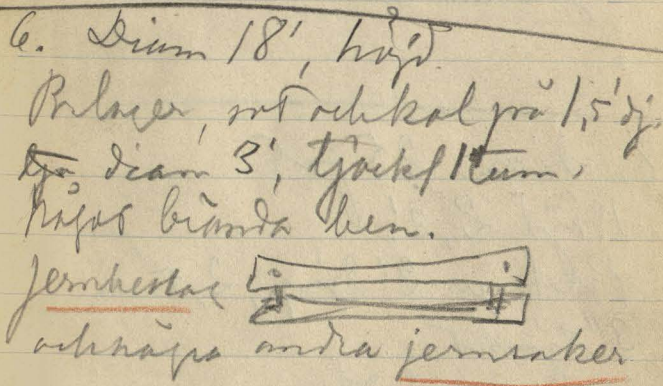 6. Diam 18', höjd
Br lager, sot och kol på 1,5' dj.
diam 3', tjockl 1 tum.
några brända ben.
Jernbeslag
och några andra jernsaker